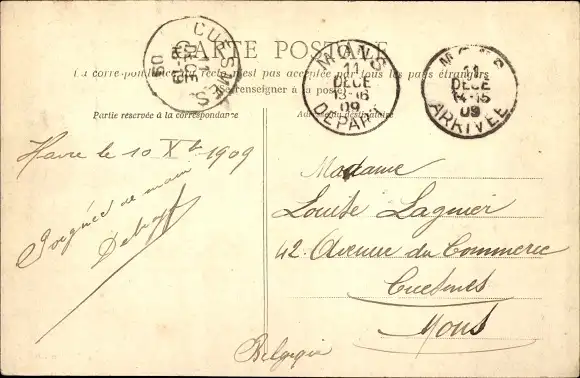 CARTE POSTALE
La correspondance au recto n'est pas acceptée par tous les pays étrangers
Se renseigner à la poste
Partie réservée à la correspondance
Adresse du destinataire
CUESMES
11
DECE
09
MONS
11
DECE
13-16
09
DEPART
MONS
11
DECE
14-15
09
ARRIVÉE
Havre le 10 Xbre 1909
Poignée de main
Madame
Louise Lagnier
42. Avenue du Commerce
Cuesmes
Mons
Belgique